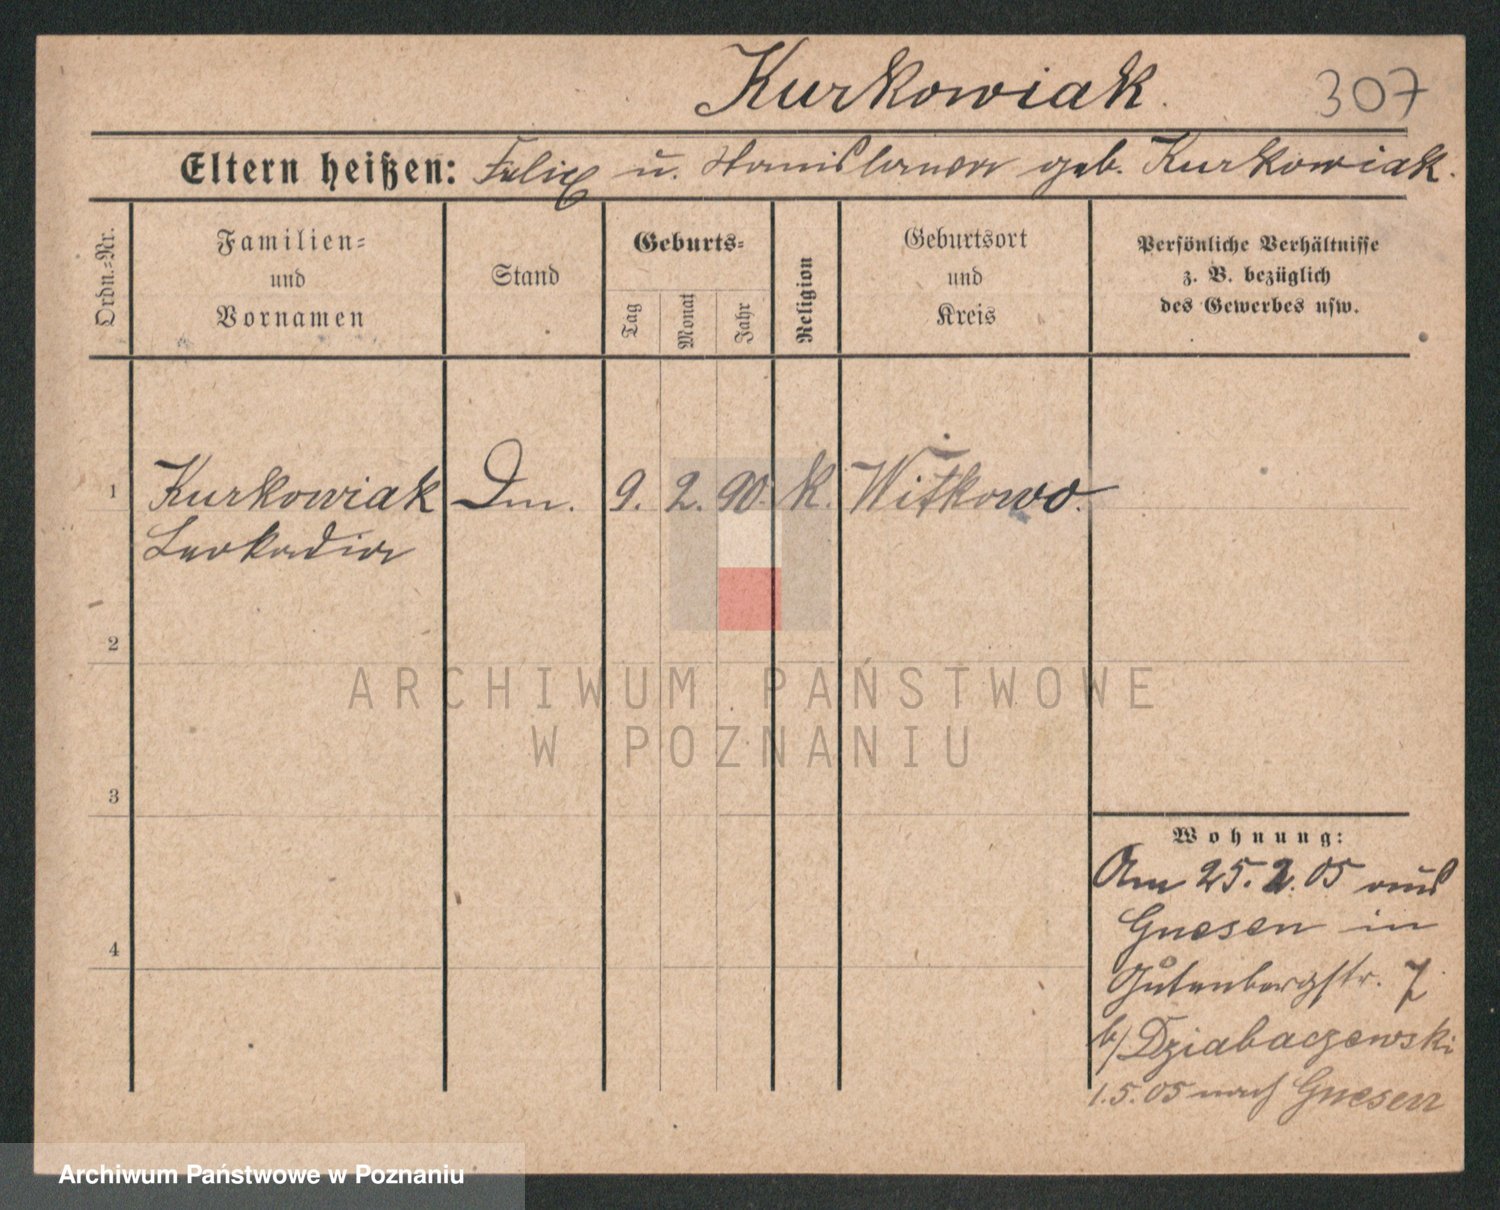 Kurkowiak.
307
Eltern heißen: Felix u. Stanislawa geb. Kurkowiak.
Ordn.=Nr.
Familien=
und
Vornamen
Stand
Geburts=
Tag
Monat
Jahr
Religion
Geburtsort
und
Kreis
Persönliche Verhältnisse
z. B. bezüglich
des Gewerbes usw.
1 Kurkowiak Dm. 9. 2. 90. K. Witkowo.
Leokadia
2
ARCHIWUM PAŃSTWOWE
W POZNANIU
3
Wohnung:
Am 25.2.05 aus
Gnesen in
4
Gutenbergstr. 7
b/ Dziabaczewski
1.5.05 nach Gnesen
Archiwum Państwowe w Poznaniu